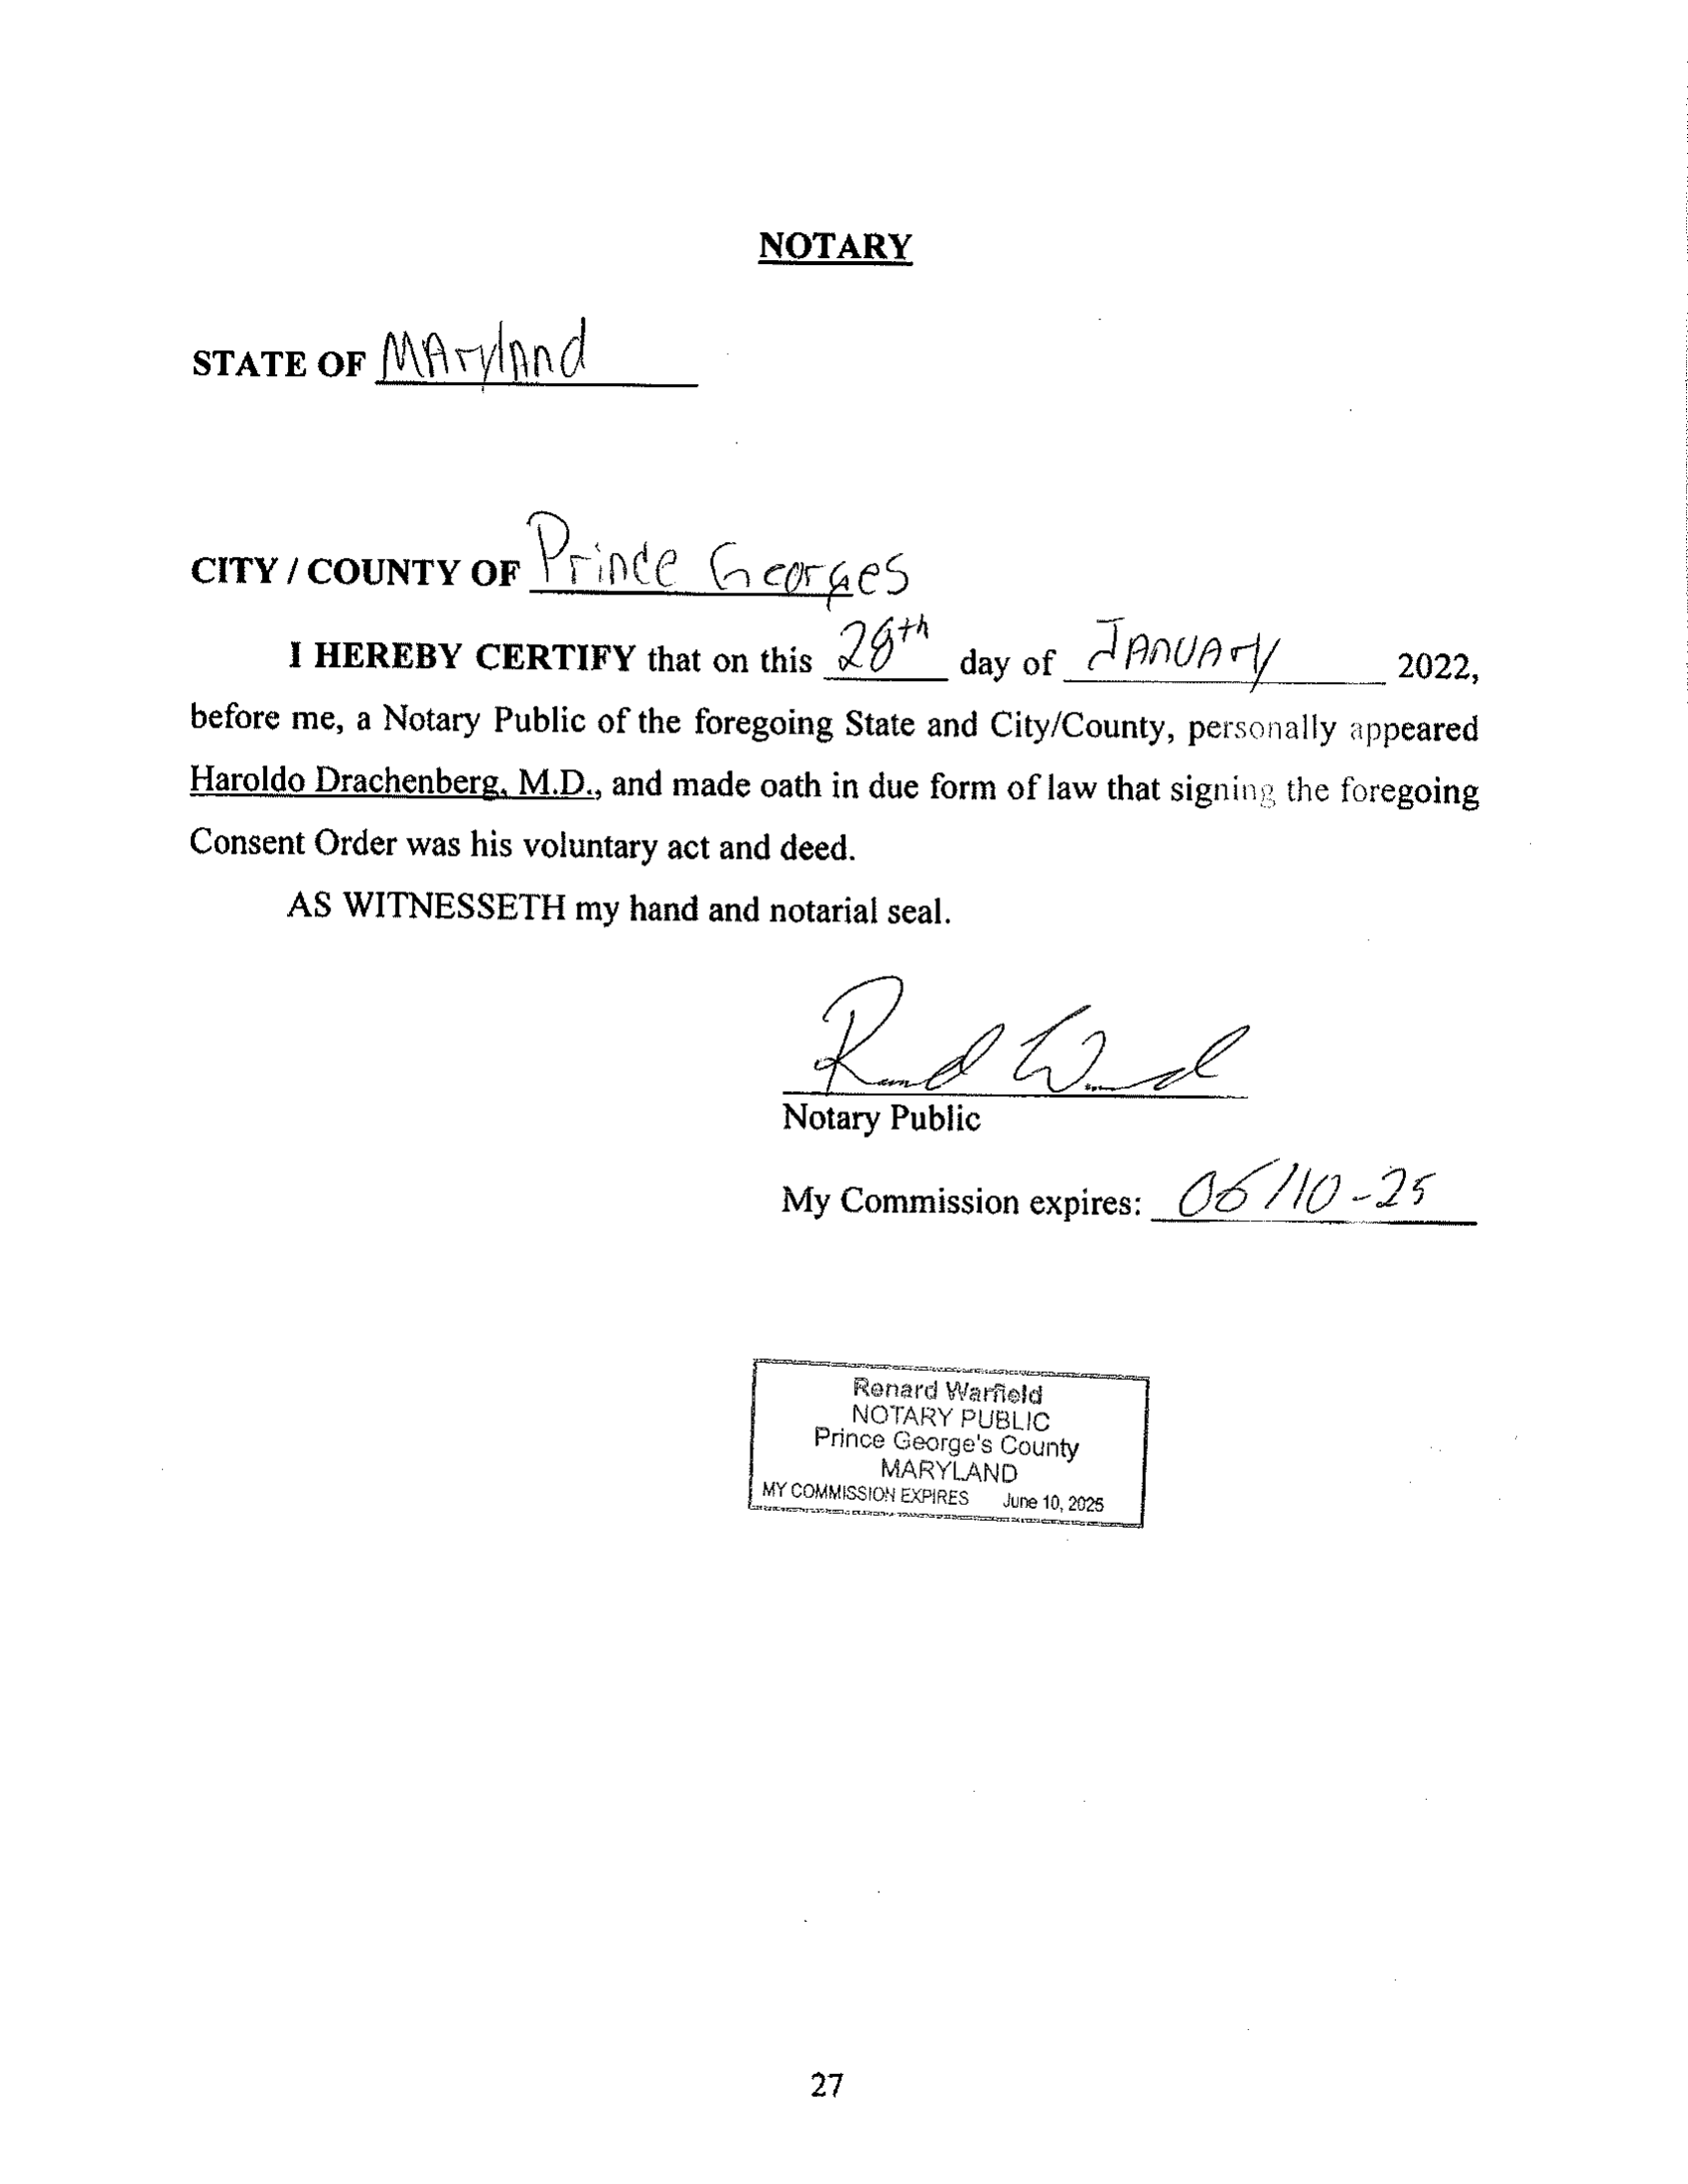 NOTARY
STATE OF MAryland
CITY / COUNTY OF Prince Georges
I HEREBY CERTIFY that on this 28th day of JANUAry 2022,
before me, a Notary Public of the foregoing State and City/County, personally appeared
Haroldo Drachenberg, M.D., and made oath in due form of law that signing the foregoing
Consent Order was his voluntary act and deed.
AS WITNESSETH my hand and notarial seal.
Notary Public
My Commission expires: 06/10-25
Renard Warfield
NOTARY PUBLIC
Prince George's County
MARYLAND
MY COMMISSION EXPIRES June 10, 2025
27